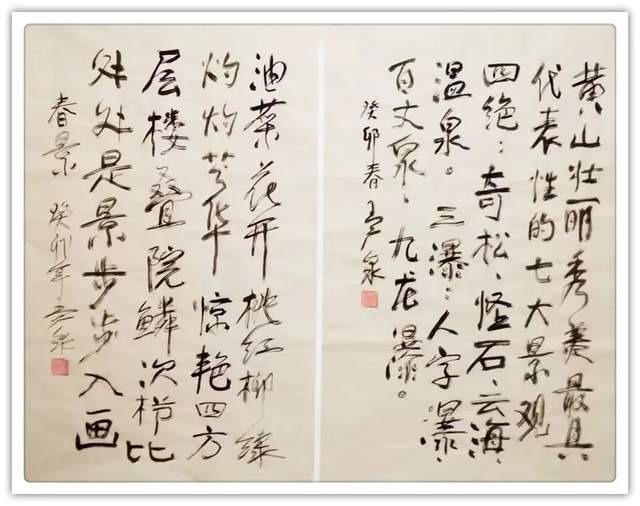 黄山壮丽秀美最具
代表性的七大景观
四绝：奇松、怪石、云海、
温泉。三瀑：人字瀑、
百丈泉、九龙瀑。
癸卯春 彦泉
油菜花开桃红柳绿
灼灼芳华 惊艳四方
层楼叠院鳞次栉比
处处是景步步入画
春景 癸卯年 彦泉